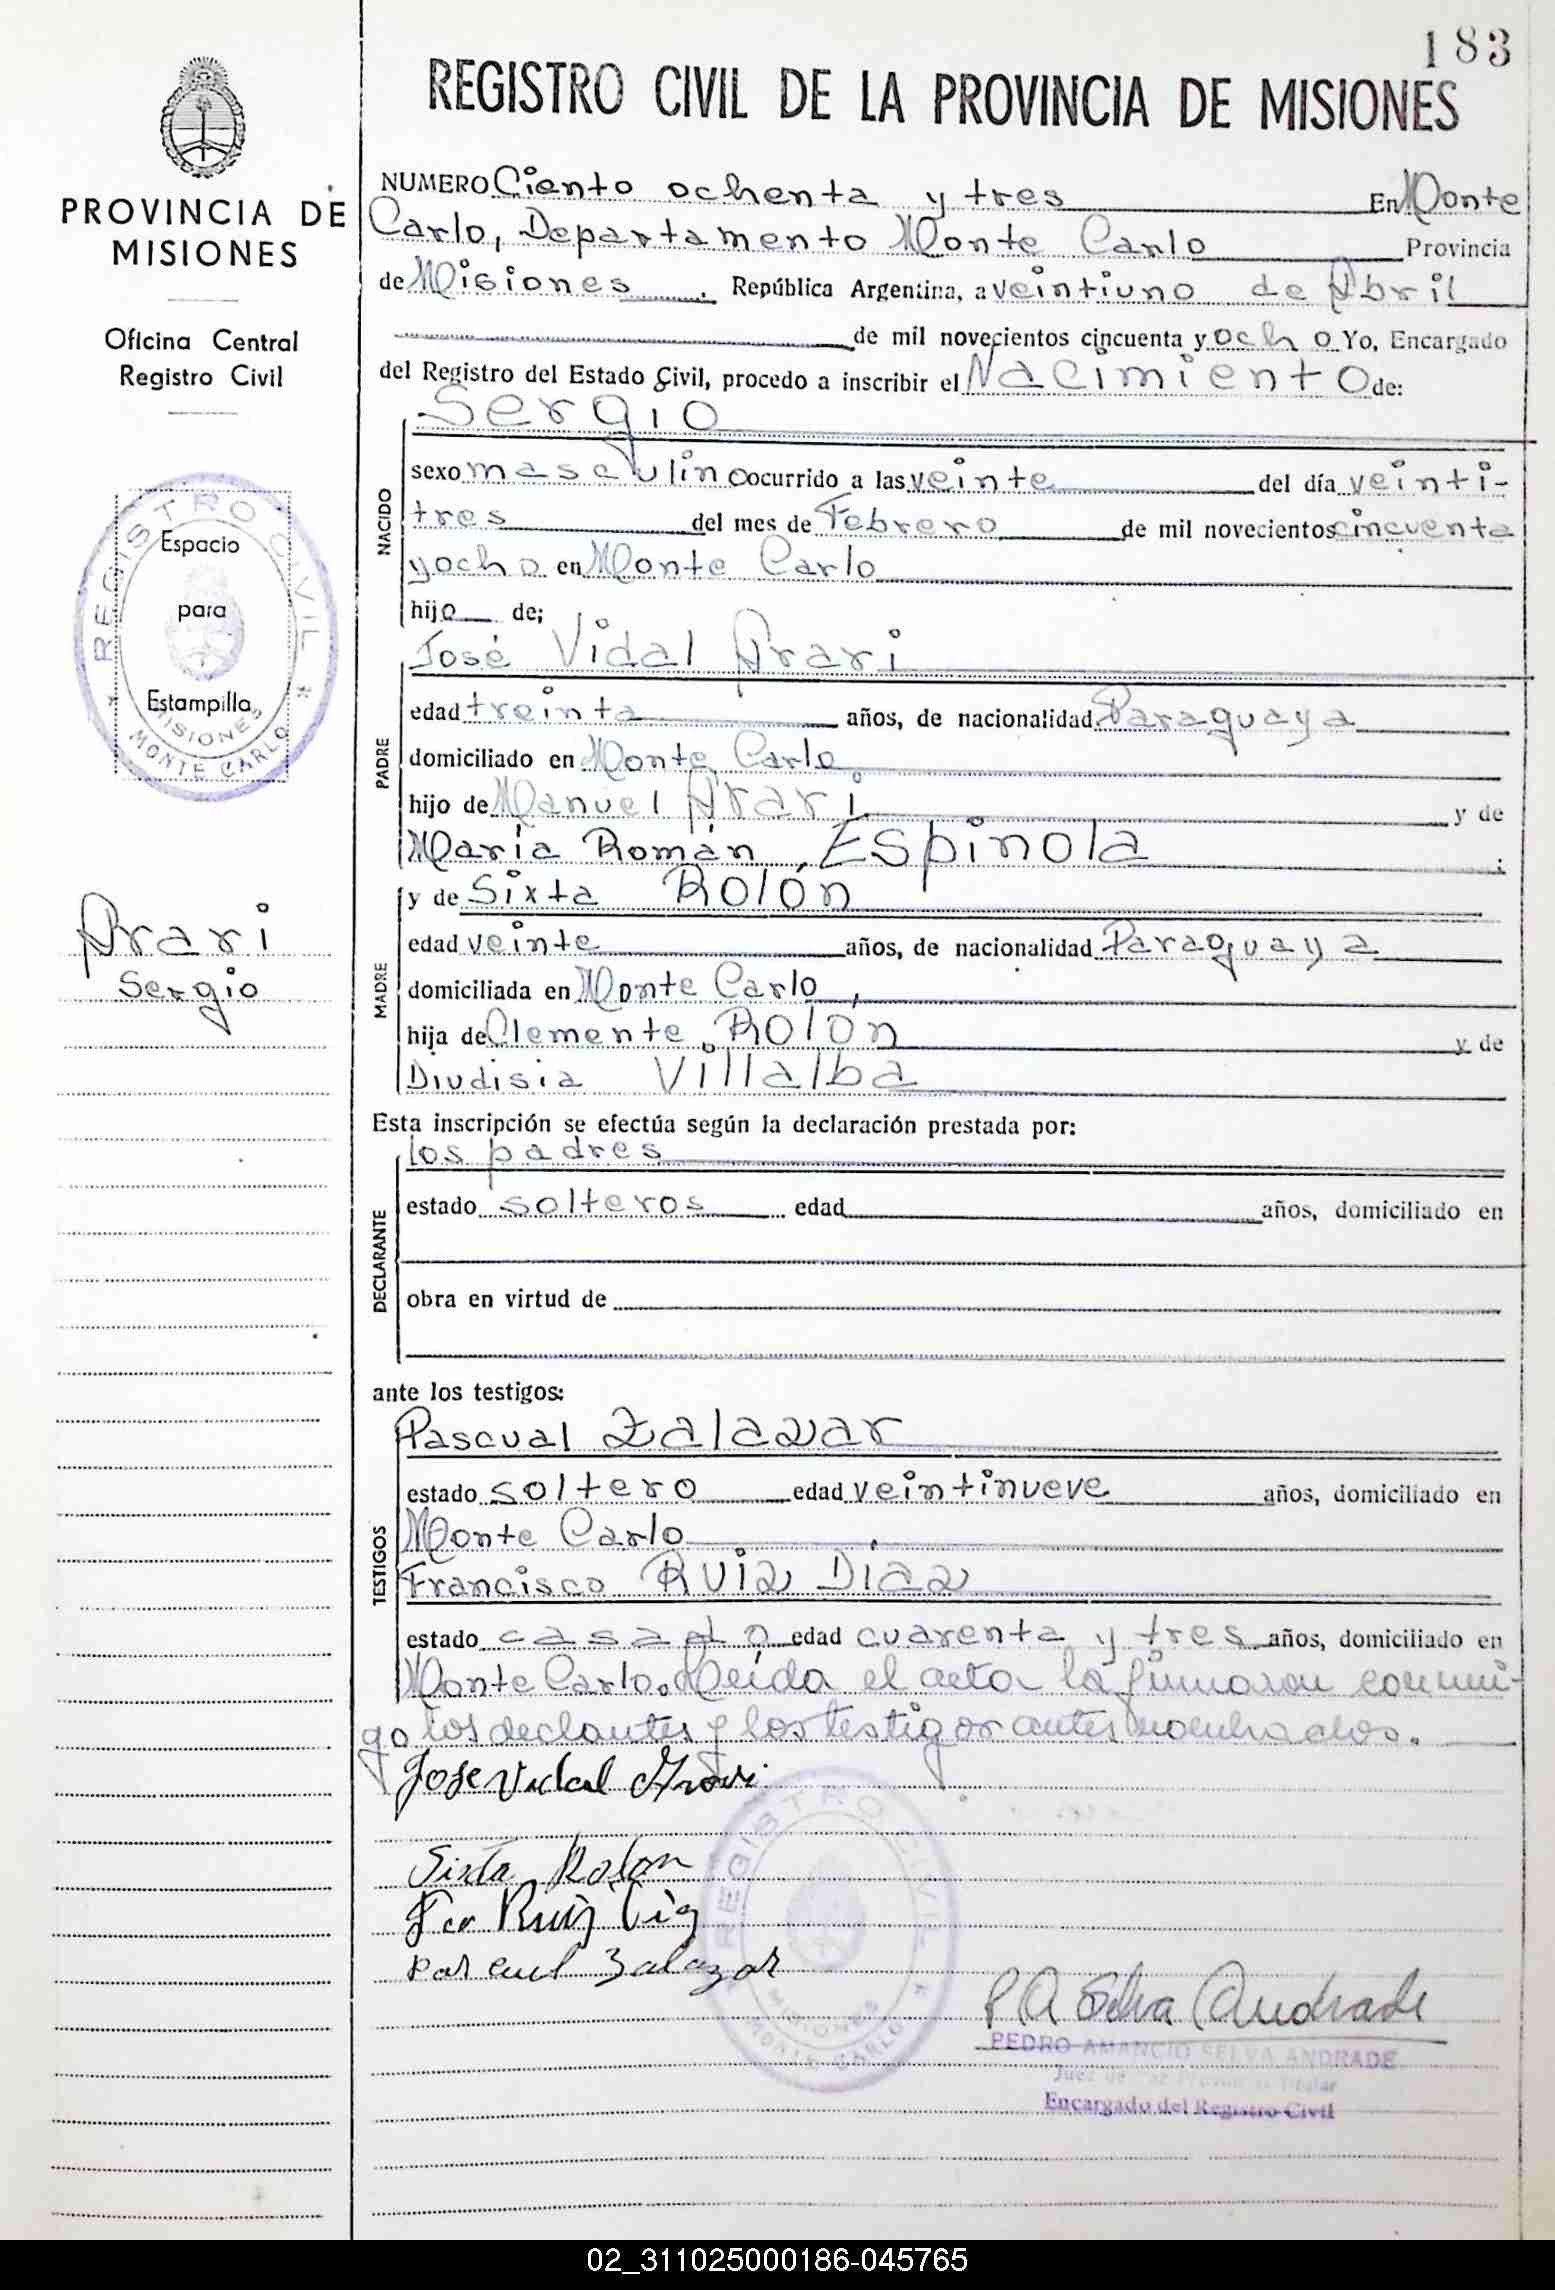 183
REGISTRO CIVIL DE LA PROVINCIA DE MISIONES
PROVINCIA DE
MISIONES
Oficina Central
Registro Civil
REGISTRO CIVIL
Espacio
para
Estampilla
MISIONES
MONTE CARLO
Arari
Sergio
NUMERO Ciento ochenta y tres En Monte
Carlo, Departamento Monte Carlo Provincia
de Misiones, República Argentina, a veintiuno de Abril
de mil novecientos cincuenta y ocho Yo, Encargado
del Registro del Estado Civil, procedo a inscribir el Nacimiento de:
NACIDO
Sergio
sexo masculino ocurrido a las veinte del día veinti-
tres del mes de Febrero de mil novecientos cincuenta
y ocho en Monte Carlo
hijo de;
PADRE
José Vidal Arari
edad treinta años, de nacionalidad Paraguaya
domiciliado en Monte Carlo
hijo de Manuel Arari y de
María Román Espinola;
MADRE
y de Sixta Rolón
edad veinte años, de nacionalidad Paraguaya
domiciliada en Monte Carlo,
hija de Clemente Rolón y de
Diudisia Villalba
Esta inscripción se efectúa según la declaración prestada por:
DECLARANTE
los padres
estado solteros edad años, domiciliado en
obra en virtud de
ante los testigos:
TESTIGOS
Pascual Zalazar
estado soltero edad veintinueve años, domiciliado en
Monte Carlo,
Francisco Ruiz Diaz
estado casado edad cuarenta y tres años, domiciliado en
Monte Carlo. Leída el acta la firmaron conmi-
go los declantes y los testigos antes nombrados.
Jose Vidal Arari
Sixta Rolon
Fco Ruiz Diaz
Pascual Zalazar
REGISTRO CIVIL
MISIONES
MONTE CARLO
P A Selva Andrade
PEDRO AMANCIO SELVA ANDRADE
Juez de Paz Titular
Encargado del Registro Civil
02_311025000186-045765